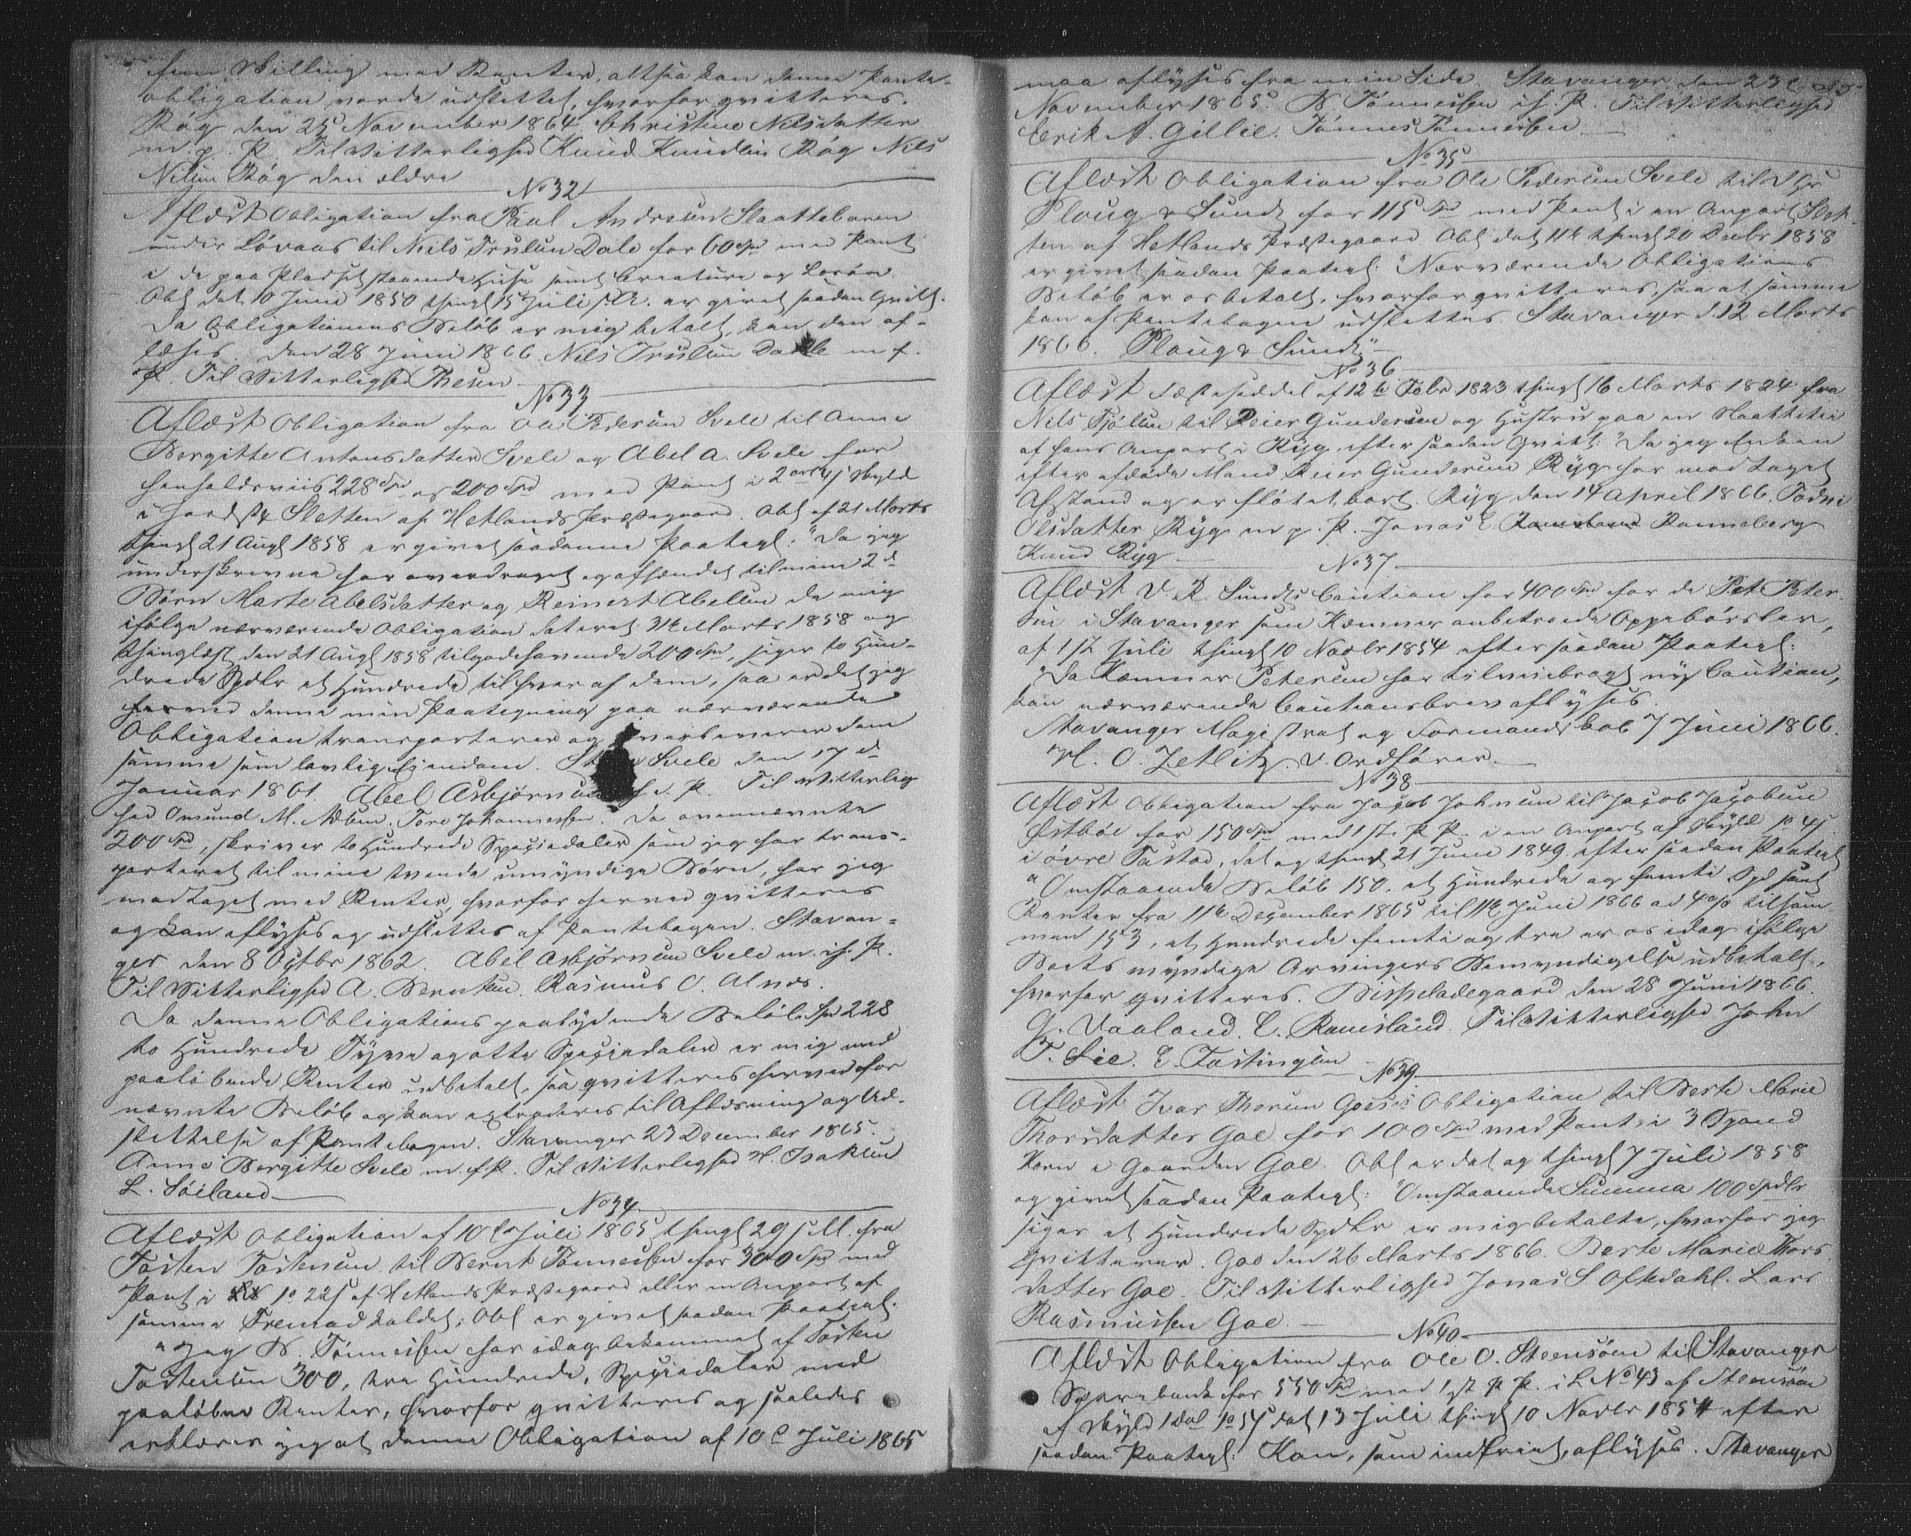 fem Skilling med Renter, altsaa kan denne Pante-
obligation vorde udslettet, hvorfor qvitteres.
Røg den 25 November 1864 Christine Nilsdatter
m. p. P. Til Vitterlighed Knud Knudsen Røg Nils
Nilsen Røg den ældre
No 32
Aflæst Obligation fra Poul Andersen Slaatteboren
under Løvaas til Nils Trulsen Dale for 60 Spd med Pant
i de paa Pladset staaende Huse samt Creature og Losøre.
Obl. dat 10 Juni 1850 thingl 15 Juli s. A. er givet saadan Qvitt.
Da Obligationens Beløb er mig betalt, kan den af-
læses. den 28 Juni 1866. Nils Trulsen Dahle m. f.
P. Til Vitterlighed Thesen
No 33
Aflæst Obligation fra Ole Pedersen Svele til Anne
Bergitte Antonsdatter Svele og Abel A. Svele for
henholdsviis 228 Spd og 200 Spd med Pant i 2 ort 4 s Skyld
i Jordst Sletten af Hetlands Præstegaard. Obl. af 21 Marts
thingl 21 Augt 1858 er givet saadanne Paategt: "Da jeg
underskrevne har overdraget og afhændet til mine 2de
Børn Marte Abelsdatter og Reinert Abelsen de mig
ifølge nærværende Obligation dateret Marts 1858 og
thinglæst den 21 Augt 1858 tilgodehavende 200 Spd, siger to Hun-
drede Spdlr et Hundrede til hver af dem, saa er det jeg
herved denne min Paategning paa nærværende
Obligation transporterer og overleverer dem
samme som lovlig Eiendom. Svele den 17de
Januar 1861. Abel Asbjørnsen P. Til Vitterlig
hed Omund M. Tore Johannessen. Da ovennævnte
200 Spd, skriver to Hundrede Speciedaler som jeg har trans-
porteret til mine tvende umyndige Børn, har jeg
modtaget med Renter, hvorfor herved qvitteres
og kan aflyses og udslettes af Pantebogen. Stavan-
ger den 8 Octbr 1862. Abel Asbjørnsen Svele m. ih. P.
Til Vitterlighed A. Berntsen. Rasmus O. Alnes.
Da denne Obligations paalydende Beløb Spd 228
to Hundrede Tyve og otte Speciedaler er mig med
paaløbende Renter udbetalt, saa qvitteres herved for
nævnte Beløb og kan extraderes til Aflæsning og Ud-
slettelse af Pantebogen. Stavanger 23 December 1865.
Anne Bergitte Svele m. f. P. Til Vitterlighed H. Isaksen
L. Søiland
No 34
Aflæst Obligation af 10de Juli 1865 thingl 29 s. M. fra
Tosten Tostensen til Bernt Tønnessen for 300 Spd med
Pant i 1o 225 af Hetlands Præstegaard eller en Anpart af
samme Tremad kaldet; Obl. er givet saadan Paategt.
"Jeg B. Tønnessen har idag bekommet af Tosten
Tostensen 300, tre Hundrede, Speciedaler med
paaløbne Renter, hvorfor qvitteres og saaledes
erklærer jeg at denne Obligation af 10de Juli 1865
maa aflyses fra min Side. Stavanger den 23de
November 1865. B. Tønnesen ih. P. Til Vitterlighed
Erik A. Gillie. Tønnes Tønnesen
No 35
Aflæst Obligation fra Ole Pedersen Svele til
Ploug & Sundt for 115 Spd med Pant i en Anpart Slet-
ten af Hetlands Præstegaard. Obl. dat 11te thingl 20 Decbr 1858
er givet saadan Paategt: "Nærværende Obligations
Beløb er os betalt, hvorfor qvitteres, saa at samme
kan af Pantebogen udslettes. Stavanger d. 12 Marts
1866. Ploug & Sundt"
No 36
Aflæst Fæsteseddel af 12te Febr 1823 thingl 16 Marts 1824 fra
Nils Tjøllsen til Reier Gundersen og Hustru paa en
af hans Anpart i Ryg, efter saadan Qvitt: "Da jeg Enken
efter afdøde Mand Reier Gundersen Ryg har modtaget
Afstand og er fløtet bort. Ryg den 14 April 1866. Tødni
Olsdatter Ryg m. p. P. Jonas E. Ramsland Ranneberg
Knud Ryg
No 37
Aflæst V. R. Sundts Caution for 400 Spd for de Pet. Peter-
sen i Stavanger som Kæmner anbetroede Oppebørsler,
af 1st Juli thingl 10 Novbr 1854 efter saadan Paategt:
"Da Kæmner Petersen har tilveiebragt ny Caution,
kan nærværende Cautionsbrev aflyses.
Stavanger Magistrat og Formandskab 7 Juni 1866.
H. O. Zetlitz v. Ordfører.
No 38
Aflæst Obligation fra Jacob Johnsen til Jacob Jacobsen
Østbøe for 150 Spd med 1st P. R. i en Anpart af Skyld
i øvre Tastad, dat og thingl 21 Juni 1849. efter saadan Paategt
"Omstaaende Beløb 150, et Hundrede og femti Spd samt
Renter fra 11te December 1865 til 11te Juni 1866 ad 4 o/o tilsam-
men 153, et Hundrede femti og tre er os idag ifølge
Boets myndige Arvingers Bemyndigelse udbetalt,
hvorfor qvitteres. Bispeladegaard den 28 Juni 1866.
G. Vaaland. C. Ramsland. Til Vitterlighed John
T. Lie. E. Tastingsen
No 39
Aflæst Ivar Thorsen Goes Obligation til Berte Marie
Thorsdatter Goe for 100 Spd med Pant i 3 Spand
Korn i Gaarden Goe. Obl. er dat og thingl 7 Juli 1858
og givet saadan Paategt: "Omstaaende Summa 100 Spdlr
siger et Hundrede Spdlr er mig betalte, hvorfor jeg
qvitterer. Goe den 26 Marts 1866. Berte Marie Thors
datter Goe. Til Vitterlighed Jonas S. Oftedahl. Lars
Rasmussen Goe.
No 40
Aflæst Obligation fra Ole O. Steensøen til Stavanger
Sparebank for 550 Spd med 1st P. P. i L No 43 af Stensøen
af Skyld 1 dal dat 13 Juli thingl 10 Novbr 1854 efter
saadan Paategt: Kan, som indfriet, aflyses. Stavanger